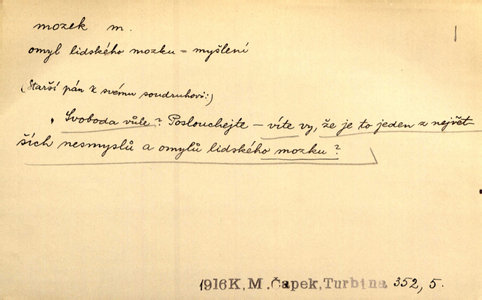 mozek m.
omyl lidského mozku = myšlení
(Starší pán k svému soudruhovi:)
„Svoboda vůle? Poslouchejte – víte vy, že je to jeden z největ-
ších nesmyslů a omylů lidského mozku?
1916 K. M. Čapek, Turbina 352, 5.